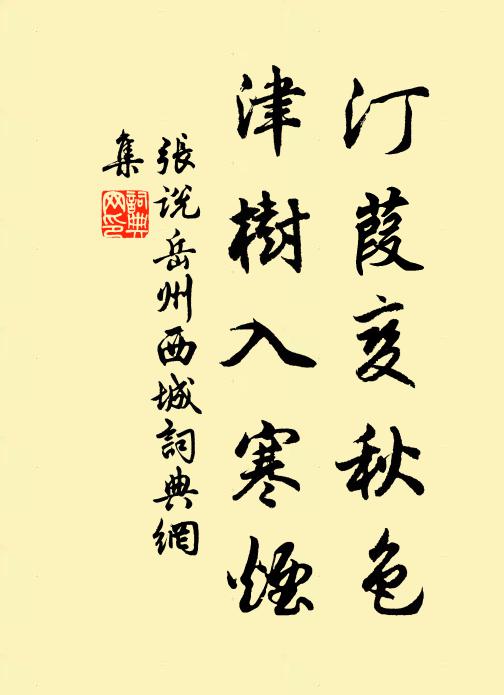 汀葭变秋色
津樹入寒煙
張说岳州西城詞典網
集
詞典
网印